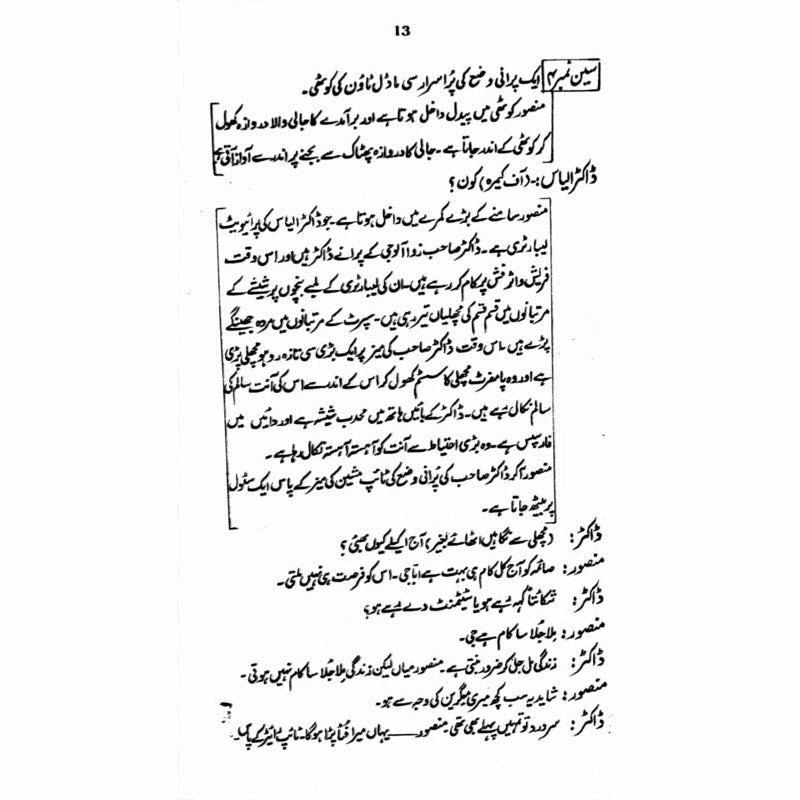 13
سین نمبر ۴ ایک پرانی وضع کی پُراسرار سی ماڈل ٹاؤن کی کوٹھی۔
منصور کوٹھی میں پیدل داخل ہوتا ہے اور برآمدے کا جالی والا دروازہ کھول
کر کوٹھی کے اندر جاتا ہے۔ جالی کا دروازہ پھٹاک سے بجنے پر اندر سے آواز آتی ہے
ڈاکٹر الیاس:۔ (آف کیمرہ) کون؟
منصور سامنے کے بڑے کمرے میں داخل ہوتا ہے۔ جو ڈاکٹر الیاس کی پرائیویٹ
لیبارٹری ہے۔ ڈاکٹر صاحب زوآلوجی کے پرانے ڈاکٹر ہیں اور اس وقت
فریش واٹر فش پر کام کر رہے ہیں۔ ان کی لیبارٹری کے لمبے بنچوں پر شیشے کے
مرتبانوں میں قسم قسم کی مچھلیاں تیر رہی ہیں۔ سپرٹ کے مرتبانوں میں مردہ جھینگے
پڑے ہیں۔ اس وقت ڈاکٹر صاحب کی میز پر ایک بڑی سی تازہ روہو مچھلی پڑی
ہے اور وہ پامفرٹ مچھلی کا سسٹم کھول کر اس کے اندر سے اس کی آنت سالم کی
سالم نکال رہے ہیں۔ ڈاکٹر کے بائیں ہاتھ میں محدب شیشہ ہے اور دائیں میں
فارسپس ہے۔ وہ بڑی احتیاط سے آنت کو آہستہ آہستہ نکال رہا ہے۔
منصور آکر ڈاکٹر صاحب کی پُرانی وضع کی ٹائپ مشین کی میز کے پاس ایک سٹول
پر بیٹھ جاتا ہے۔
ڈاکٹر: (مچھلی سے نگاہیں اٹھائے بغیر) آج اکیلے کیوں بھئی؟
منصور: صائمہ کو آج کل کام ہی بہت ہے اباجی۔ اس کو فرصت ہی نہیں ملتی۔
ڈاکٹر: شکائتاً کہہ رہے ہو یا سٹیٹمنٹ دے رہے ہو؟
منصور: ملا جلا سا کام ہے جی۔
ڈاکٹر: زندگی مل جل کر ضرور بنتی ہے۔ منصور میاں لیکن زندگی ملا جلا سا کام نہیں ہوتی۔
منصور: شاید یہ سب کچھ میری میگرین کی وجہ سے ہو۔
ڈاکٹر: سر درد تو تمہیں پہلے بھی تھی منصور — یہاں میرا فُٹا پڑا ہوگا۔ ٹائپ رائیٹر کے پاس